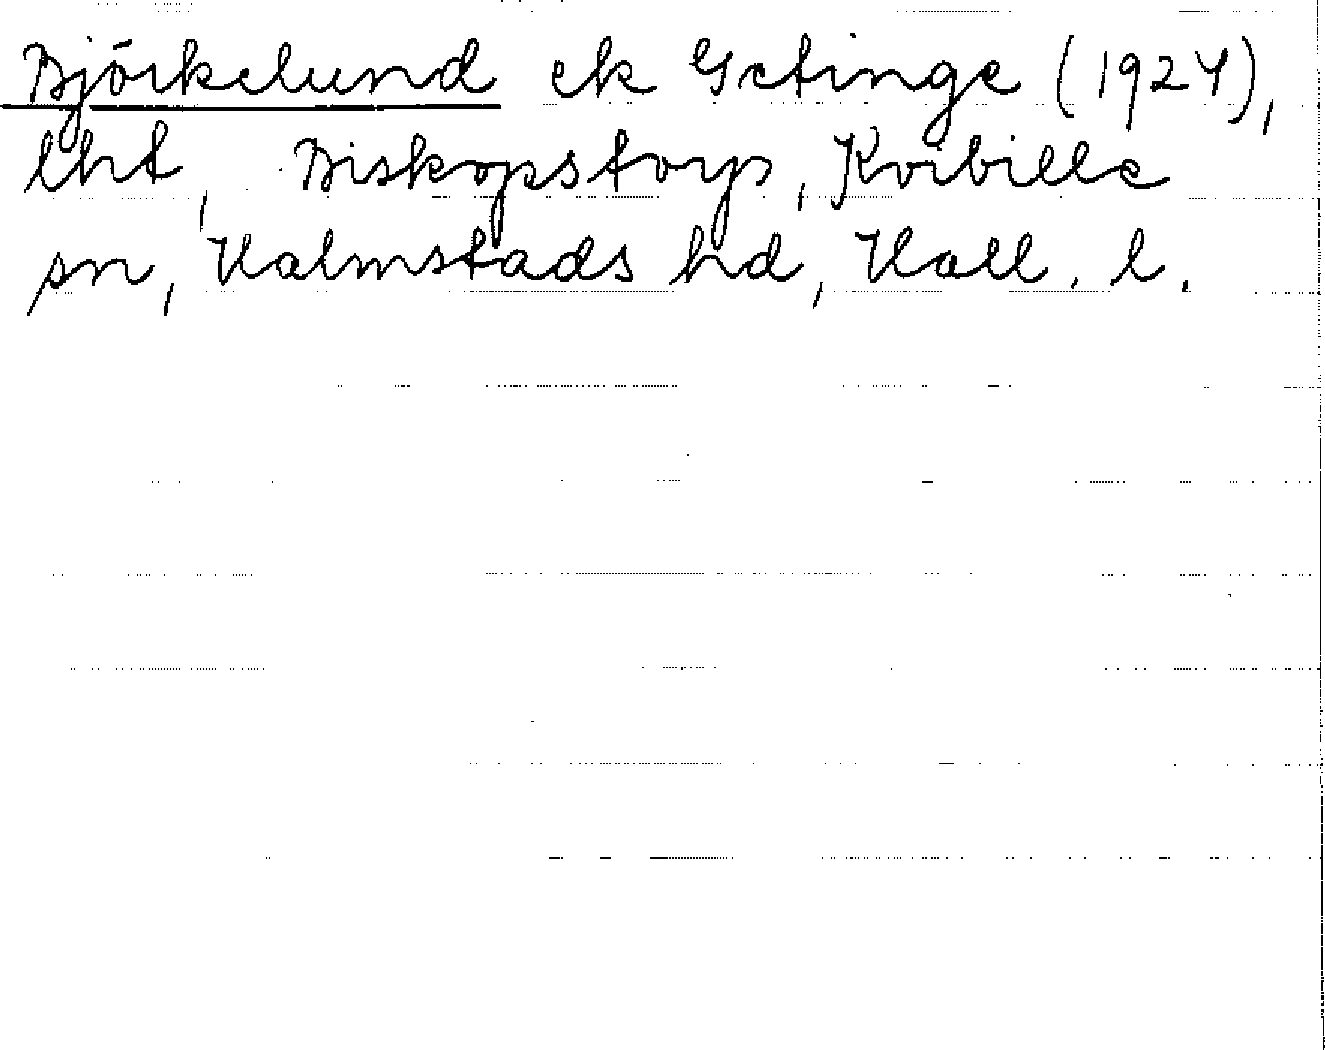 Björkelund ek Getinge (1924),
lht, Biskopstorp, Kvibille
sn, Halmstads hd, Hall. l.